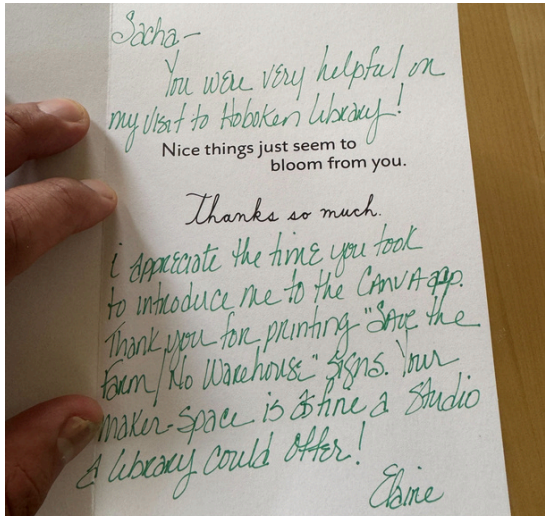 Sacha-
You were very helpful on
my visit to Hoboken Library!
Nice things just seem to
bloom from you.
Thanks so much.
i appreciate the time you took
to introduce me to the CANVA app.
Thank you for printing "Save the
Farm/No Warehouse" signs. Your
maker-space is as fine a studio
a library could offer!
Elaine